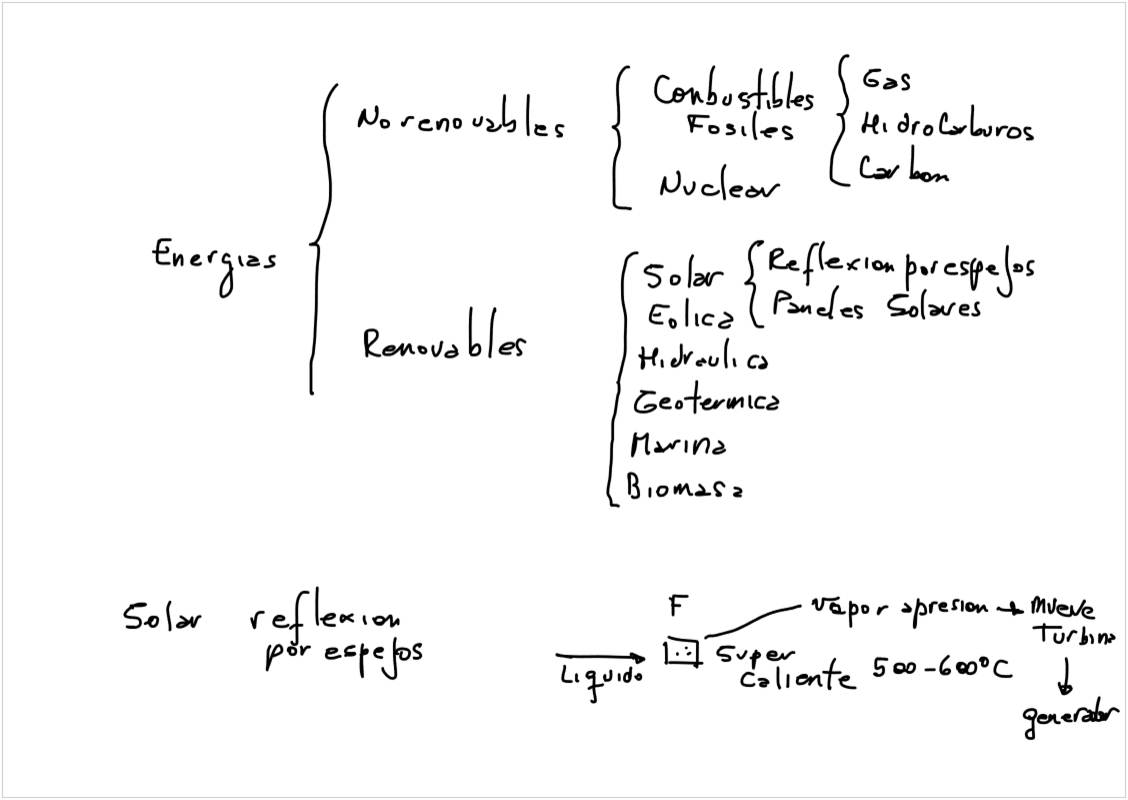 Energias
No renovables
Combustibles
Fosiles
Nuclear
Gas
HidroCarburos
Carbon
Renovables
Solar
Reflexion por espejos
Paneles Solares
Eolica
Hidraulica
Geotermica
Marina
Biomasa
Solar reflexion
por espejos
Liquido
F
Super
Caliente 500-600°C
Vapor apresion → mueve
Turbina
↓
generador